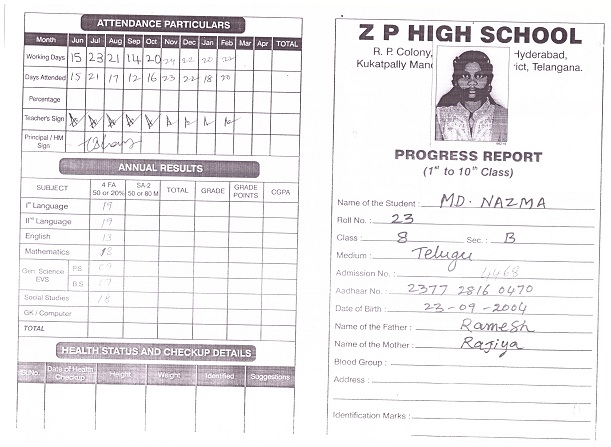 ATTENDANCE PARTICULARS
Month Jun Jul Aug Sep Oct Nov Dec Jan Feb Mar Apr TOTAL
Working Days 15 23 21 14 20 24 22 20 22
Days Attended 15 21 17 12 16 23 22 18 20
Percentage
Teacher's Sign
Principal / HM Sign
ANNUAL RESULTS
SUBJECT 4 FA 50 or 20% SA-2 50 or 80 M TOTAL GRADE GRADE POINTS CGPA
Ist Language 19
IInd Language 19
English 13
Mathematics 18
Gen. Science EVS P.S
B.S
Social Studies 18
GK / Computer
TOTAL
HEALTH STATUS AND CHECKUP DETAILS
Sl.No. Date of Health Checkup Height Weight Identified Suggestions
Z P HIGH SCHOOL
R. P. Colony, Hyderabad,
Kukatpally Telangana.
PROGRESS REPORT
(1st to 10th Class)
Name of the Student : MD. NAZMA
Roll No. : 23
Class : 8 Sec. : B
Medium : Telugu
Admission No. : 4468
Aadhaar No. : 2377 2816 0470
Date of Birth : 23-09-2004
Name of the Father : Ramesh
Name of the Mother : Rajiya
Blood Group :
Address :
Identification Marks :